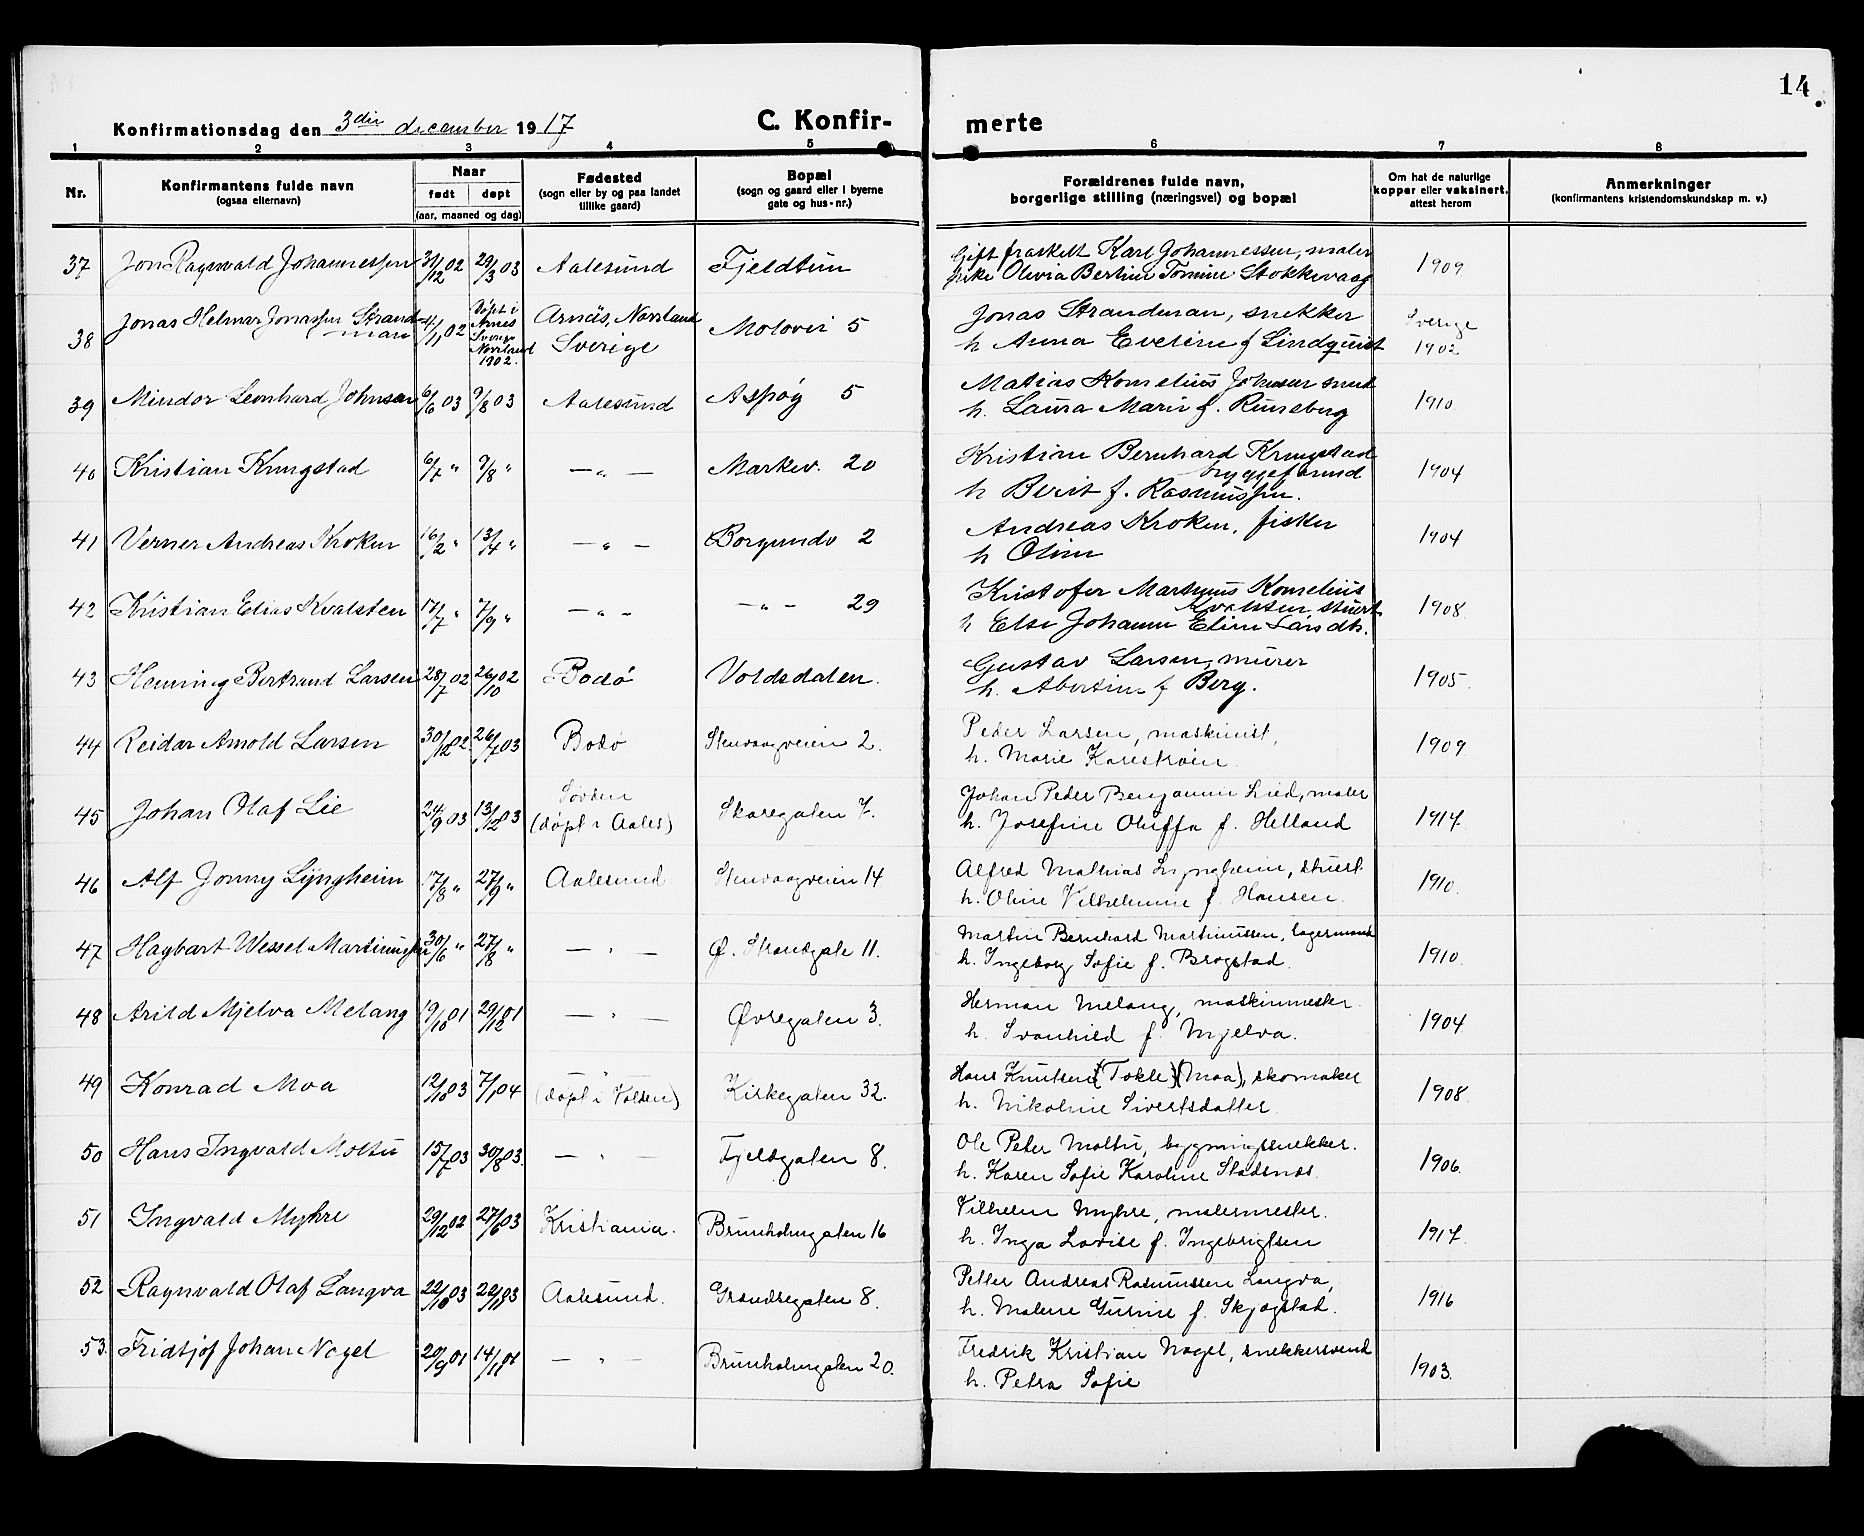 14.
Konfirmationsdag den 3die december 1917
C. Konfir-merte
1 2 3 4 5 6 7 8
Nr.
Konfirmantens fulde navn
(ogsaa efternavn)
Naar
født døpt
(aar, maaned og dag)
Fødested
(sogn eller by og paa landet
tillike gaard)
Bopæl
(sogn og gaard eller i byerne
gate og hus-nr.)
Forældrenes fulde navn,
borgerlige stilling (næringsvei) og bopæl
Om hat de naturlige
kopper eller vaksinert,
attest herom
Anmerkninger
(konfirmantens kristendomskundskap m. v.)
37 Jon Ragnvald Johannessen 31/12 02 29/3 03 Aalesund Fjeldtun
Gift fraskilt Karl Johannessen, maler
Olivia Bertine Tomine Stokkevaag
1909
38 Jonas Helmer Jonassen Strand-
man
4/11 02
Døpt i
Arnes
Sverige
Norrland
1902.
Arnäs, Norrland
Sverige
Molovei 5
Jonas Strandman, snekker
h Anna Eveline f Lindquist
Sverige
1902
39 Mindor Leonhard Johnsen 6/6 03 9/8 03 Aalesund Aspøy 5
Matias Kornelius Johnsen smed
h. Laura Marie f. Runeberg
1910
40 Kristian Kringstad 6/7 " 9/8 " — " — Markev. 20
Kristian Bernhard Kringstad
h Berit f. Rasmussen.
1904
41 Verner Andreas Kroken 16/2 " 13/4 " — " — Borgundv 2
Andreas Kroken, fisker
h Oline
1904
42 Kristian Elias Kvalsten 17/7 " 7/9 " — " — — " — 29
Kristofer Martinus Kornelius
Kvalsten stuert
h Else Johanne Eline Larsdtr.
1908
43 Henning Bertrand Larsen 28/7 02 26/10 02 Bodø Voldsdalen.
Gustav Larsen, murer
h. Abertine f Berg.
1905
44 Reidar Arnold Larsen 30/12 02 26/7 03 Bodø Stenvaagveien 2.
Peder Larsen, maskinist,
h. Marie Karestrøien.
1909
45 Johan Olaf Lie 24/9 03 13/12 03
Søvden
(døpt i Aales)
Skaregaten 7.
Johan Peder Benjamin Lied, maler
h. Josefine Oluffa f. Helland
1914
46 Alf Jonny Lyngheim 17/8 " 27/9 " Aalesund Stenvaagveien 14
Alfred Mathias Lyngheim, stuert
h. Oline Vilhelmine f. Hansen.
1910.
47 Hagbart Wessel Martinussen 30/6 " 27/8 " — " — Ø. Strandgate 11.
Martin Bernhard Martinussen, lagermand
h. Ingeborg Sofie f. Brogstad.
1910.
48 Arild Mjelva Melang 19/10 01 29/12 01 — " — Øvregaten 3.
Herman Melang, maskinmester.
h. Svanhild f. Mjelva.
1904
49 Konrad Moa 12/10 03 7/1 04
— " —
(døpt i Volden)
Kirkegaten 32.
Hans Knutsen (Tokle) (Moa), skomaker
h. Nikoline Sivertsdatter
1908
50 Hans Ingvald Moltu 15/7 03 30/8 03. — " — Fjeldgaten 8.
Ole Peter Moltu, bygningssnekker.
h. Karen Sofie Karoline Stadsnes.
1906.
51 Ingvald Myhre 29/12 02 27/6 03 Kristiania. Brunholmgaten 16
Vilhelm Myhre, malermester.
h. Inga Lovise f. Ingebrigtsen
1917.
52 Ragnvald Olaf Langva 22/10 03 22/11 03 Aalesund. Grændsegaten 8.
Petter Andreas Rasmussen Langva,
h. Malene Gurine f. Skjogstad.
1916
53. Fridtjof Johan Nagel 20/9 01 14/11 01 — " — Brunholmgaten 20.
Fredrik Kristian Nagel, snekkersvend
h. Petra Sofie
1903.